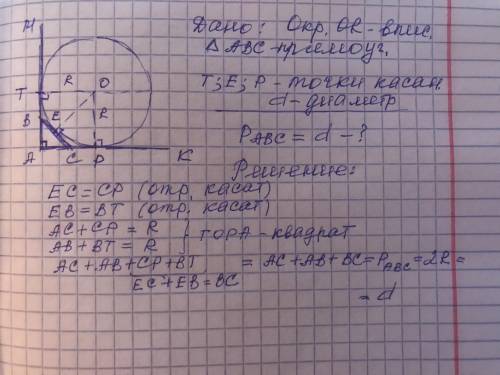 Дано: Окр. OR - впис.
△ABC - прямоуг.
T; E; P - точки касан.
d - диаметр
P ABC = d - ?
Решение:
M
R
O
T
B
E
R
A
C
P
K
EC = CP (отр. касат)
EB = BT (отр. касат)
AC + CP = R
AB + BT = R
} TOPA - квадрат
AC + AB + CP + BT = AC + AB + BC = P ABC = 2R =
EC + EB = BC
= d